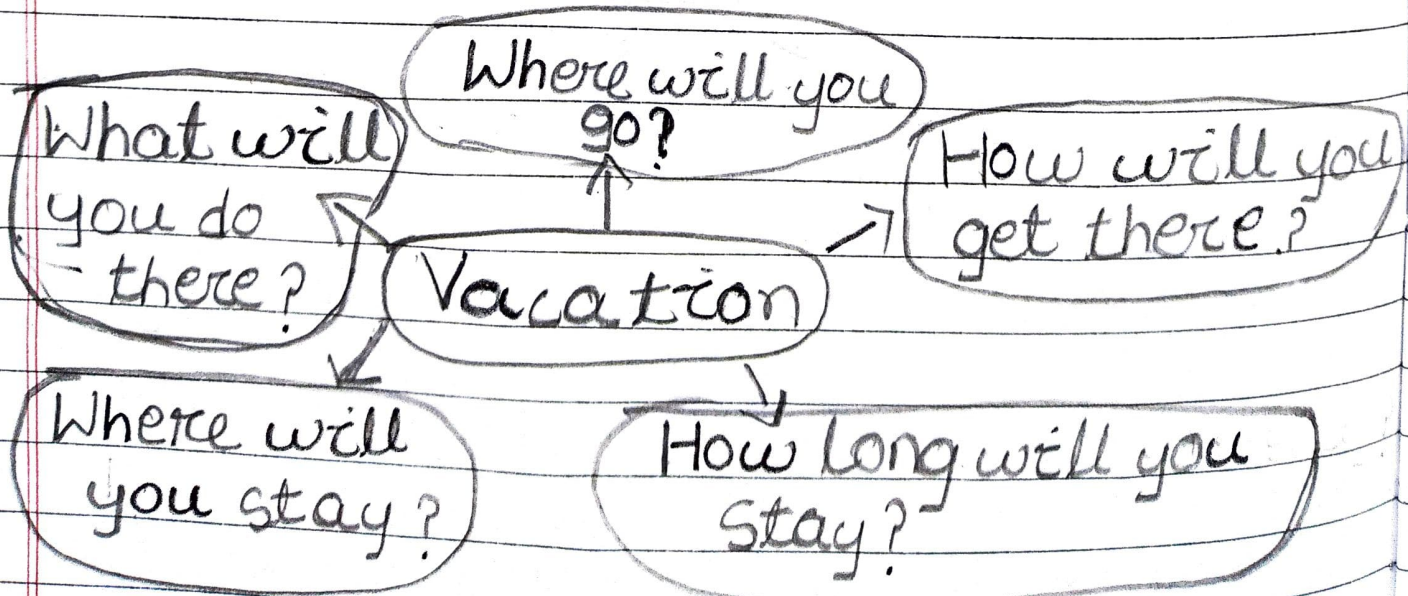 Where will you
go?
What will
you do
there?
How will you
get there?
Vacation
Where will
you stay?
How long will you
stay?